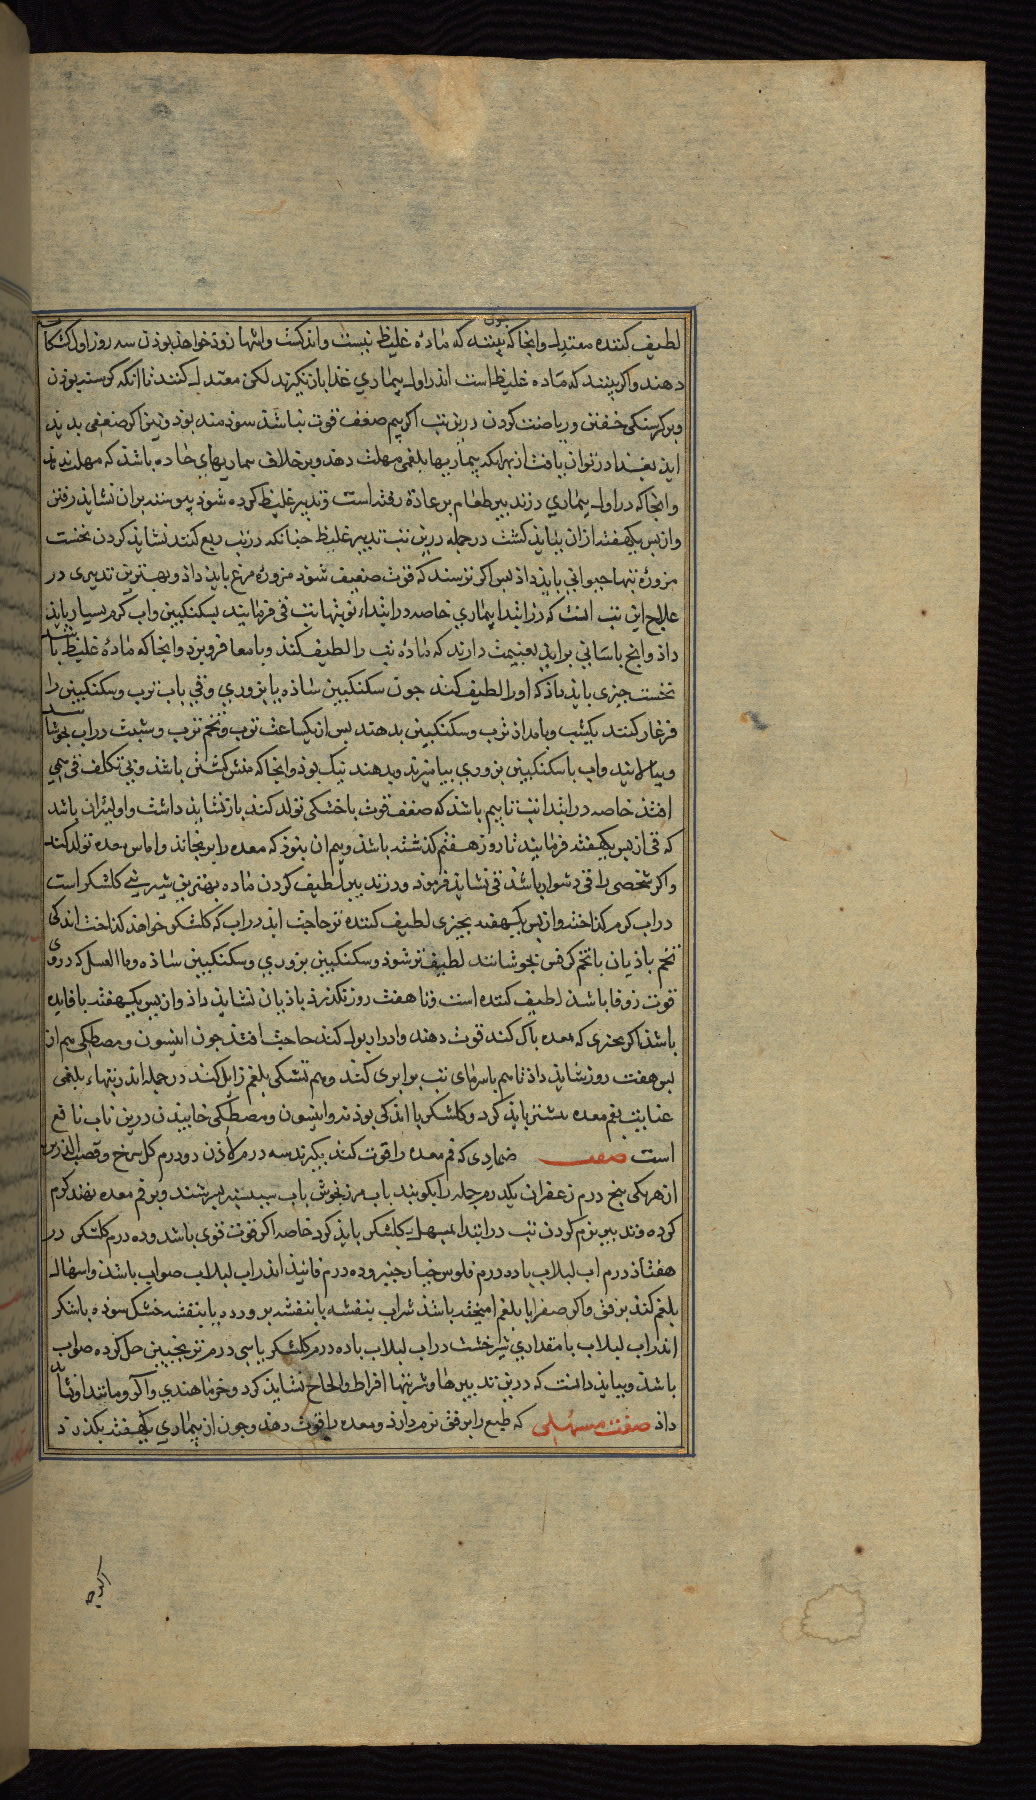 لطیف کننده معتدل وانجا که چون بینند که ماده غلیظ نیست واندکست وانتها زود خواهد بوذن سه روز اول کشکاب
دهند واکر بینند که ماده غلیظ است اندر اول بیماری غذا باز نکیرند لکن معتدل کنند تا انکه کرسنه بوذن
وبر کرسنکی خفتن وریاضت کردن درین تب اکر بیم ضعف قوت نباشذ سوذمند بوذ وزین اکر ضعفی بدید
ایذ بغذا در توان یافت از بهر انکه بیماریها بلغمی مهلت دهد وبر خلاف بیماریهای حاده باشذ که مهلت ندهد
وانجا که در اول بیماری در تدبیر طعام بر عاده رفته است وتدبیر غلیظ کرده شوذ پیوسته بران نشایذ رفتن
واز بس یکهفته ازان ببایذ کشت در جمله درین تب تدبیر غلیظ جنانکه در تب ربع کنند نشایذ کردن نخست
مزوره تنها حیوانی بایذ داذ بس اکر ترسند که قوت ضعیف شوذ مزوره مرغ بایذ داذ وبهترین تدبیری در
علاج این تب انست که در ابتدا بیماری خاصه در ابتداء نوبتها تب قی فرمایند بسکنکبین واب کرم بسیار بایذ
داذ وانج باسانی برایذ بغنیمت دارند که ماده تب را لطیف کند وبامعا فرو برد وانجا که ماده غلیظ باشد
نخست جیزی بایذ داذ که اورا لطیف کند جون سکنکبین ساذه یا بزوری وقی باب ترب وسکنکبین را
فرغار کنند یکشب وبامداذ ترب وسکنکبین بدهند بس از یکساعت ترب وتخم ترب وشبث دراب بجوشانند
وبپالایند واب با سکنکبین بزوری بیامیزند وبدهند نیک بوذ وانجا که منش کشتن باشذ وبی تکلف قی همی
افتذ خاصه در ابتدا تب تا بیم باشذ که ضعف قوت با خشکی تولد کند باز نشایذ داشت واولیتران باشد
که قی از بس یکهفته فرمایند تا روز هفتم کذشته باشذ وبیم ان بنوذ که معده را برنجاند واماس معده تولد کند
واکر شخصی را قی دشوار باشذ قی نشایذ فرموذ ودر تدبیر لطیف کردن ماده بهترین شربتی کلشکر است
دراب کرم کذاخته واز بس یکهفته بجیزی لطیف کننده تر حاجت ایذ دراب که کلشکر خواهذ کذاخت اندکی
تخم باذیان یا تخم کرفس بجوشانند لطیف تر شوذ وسکنکبین بزوری وسکنکبین ساذه وماالعسل که دروی
قوت زوفا باشذ لطیف کننده است وتا هفت روز نکذرذ باذیان نشایذ داذ واز بس یکهفته با فایده
باشذ اکر بجیزی که معده باک کند قوت دهد وادرار بول کند حاجت افتذ جون انیسون ومصطکی هم از
بس هفت روز شایذ داذ تا هم با سرمای تب برابری کند وهم تشنکی بلغم زایل کند در جمله اندر تبهاء بلغمی
عنایت بفم معده بیشتر بایذ کرد وکلشکر با اندکی بوذنه وانیسون ومصطکی خاییدن درین باب نافع
است صفت ضمادی که فم معده را قوت کند بکیرند سه درم لاذن دو درم کل سرخ وقصب الذریره
از هر یکی پنج درم زعفران یکدرم جمله را بکوبند باب مرزنجوش باب سیسنبر بسرشند وبر فم معده نهند کرم
کرده وتدبیر نرم کردن تب در ابتدا بمسهل کلشکر بایذ کرد خاصه اکر قوت قوی باشد وده درم کلشکر در
هفتاذ درم اب لبلاب یا ده درم فلوس خیار جنبر وده درم فانیذ اندر اب لبلاب صواب باشذ واسهال
بلغم کند برفق واکر صفرا با بلغم امیخته باشذ شراب بنفشه یا بنفشه برورده یا بنفشه خشک سوده با شکر
اندر اب لبلاب با مقداری شیر خشت دراب لبلاب یا ده درم کلشکر با سی درم ترنجبین حل کرده صواب
باشذ وببایذ دانست که درین تدبیرها وشربتها افراط والحاح نشایذ کرد وخرما هندی والو ومانند او نشاید
داذ صفت مسهلی که طبع را برفق نرم دارذ ومعده را قوت دهذ وجون از بیماری یکهفته بکذرد